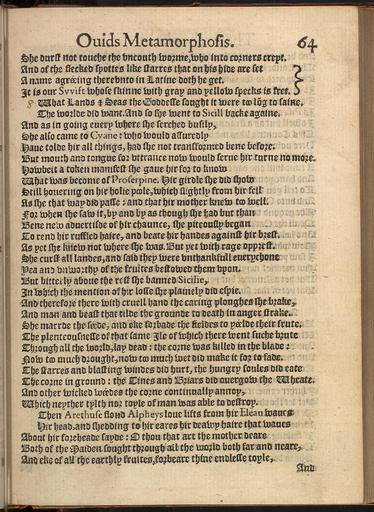 Ouids Metamorphosis. 64
She durst not touche the vncouth worme, who into corners crept.
And of the flecked spottes like starres that on his hide are set
A name agréeing therevnto in Latine doth he get.
It is our Swift whose skinne with gray and yellow specks is fret.
What Lands & Seas the Goddesse sought it were to lōg to saine.
The worlde did want. And so she went to Sicill backe againe.
And as in going euery where she serched busily,
She also came to Cyane: who would assuredly
Haue tolde hir all things, had she not transformed bene before.
But mouth and tongue for vttrance now would serue hir turne no more.
Howbeit a token manifest she gaue hir for to know
What was become of Proserpine. Hir girdle she did show
Still houering on hir holie pole, which slightly from hir fell
As she that way did passe: and that hir mother knew to well.
For when she saw it, by and by as though she had but than
Bene new aduertisde of hir chaunce, she piteously began
To rend hir ruffled haire, and beate hir handes against hir brest.
As yet she knew not where she was. But yet with rage opprest,
She curst all landes, and said they were vnthankfull euerychone
Yea and vnworthy of the fruites bestowed them vpon.
But bitterly aboue the rest she banned Sicilie,
In which the mention of hir losse she plainely did espie.
And therefore there with cruell hand the earing ploughes she brake,
And man and beast that tilde the grounde to death in anger strake.
She marrde the séede, and eke forbade the fieldes to yéelde their frute.
The plenteousnesse of that same Ile of which there went suche brute
Through all the world, lay dead: the corne was killed in the blade:
Now to much drought, now to much wet did make it for to fade.
The starres and blasting windes did hurt, the hungry foules did eate
The corne in ground: the Tines and Briars did ouergrow the Wheate.
And other wicked wéedes the corne continually annoy,
Which neyther tylth nor toyle of man was able to destroy.
Then Arethuse flond Alpheys loue lifts from hir Elean waues
Hir head, and shedding to hir eares hir deawy haire that waues
About hir foreheade sayde: O thou that art the mother deare
Both of the Maiden sought through all the world both far and neare,
And eke of all the earthly fruites, forbeare thine endlesse toyle,
And